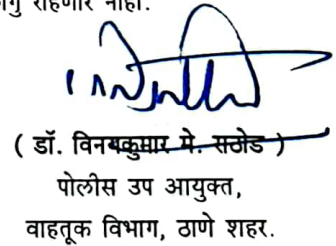 राहणार नाही.
( डॉ. विनयकुमार मे. राठोड )
पोलीस उप आयुक्त,
वाहतूक विभाग, ठाणे शहर.